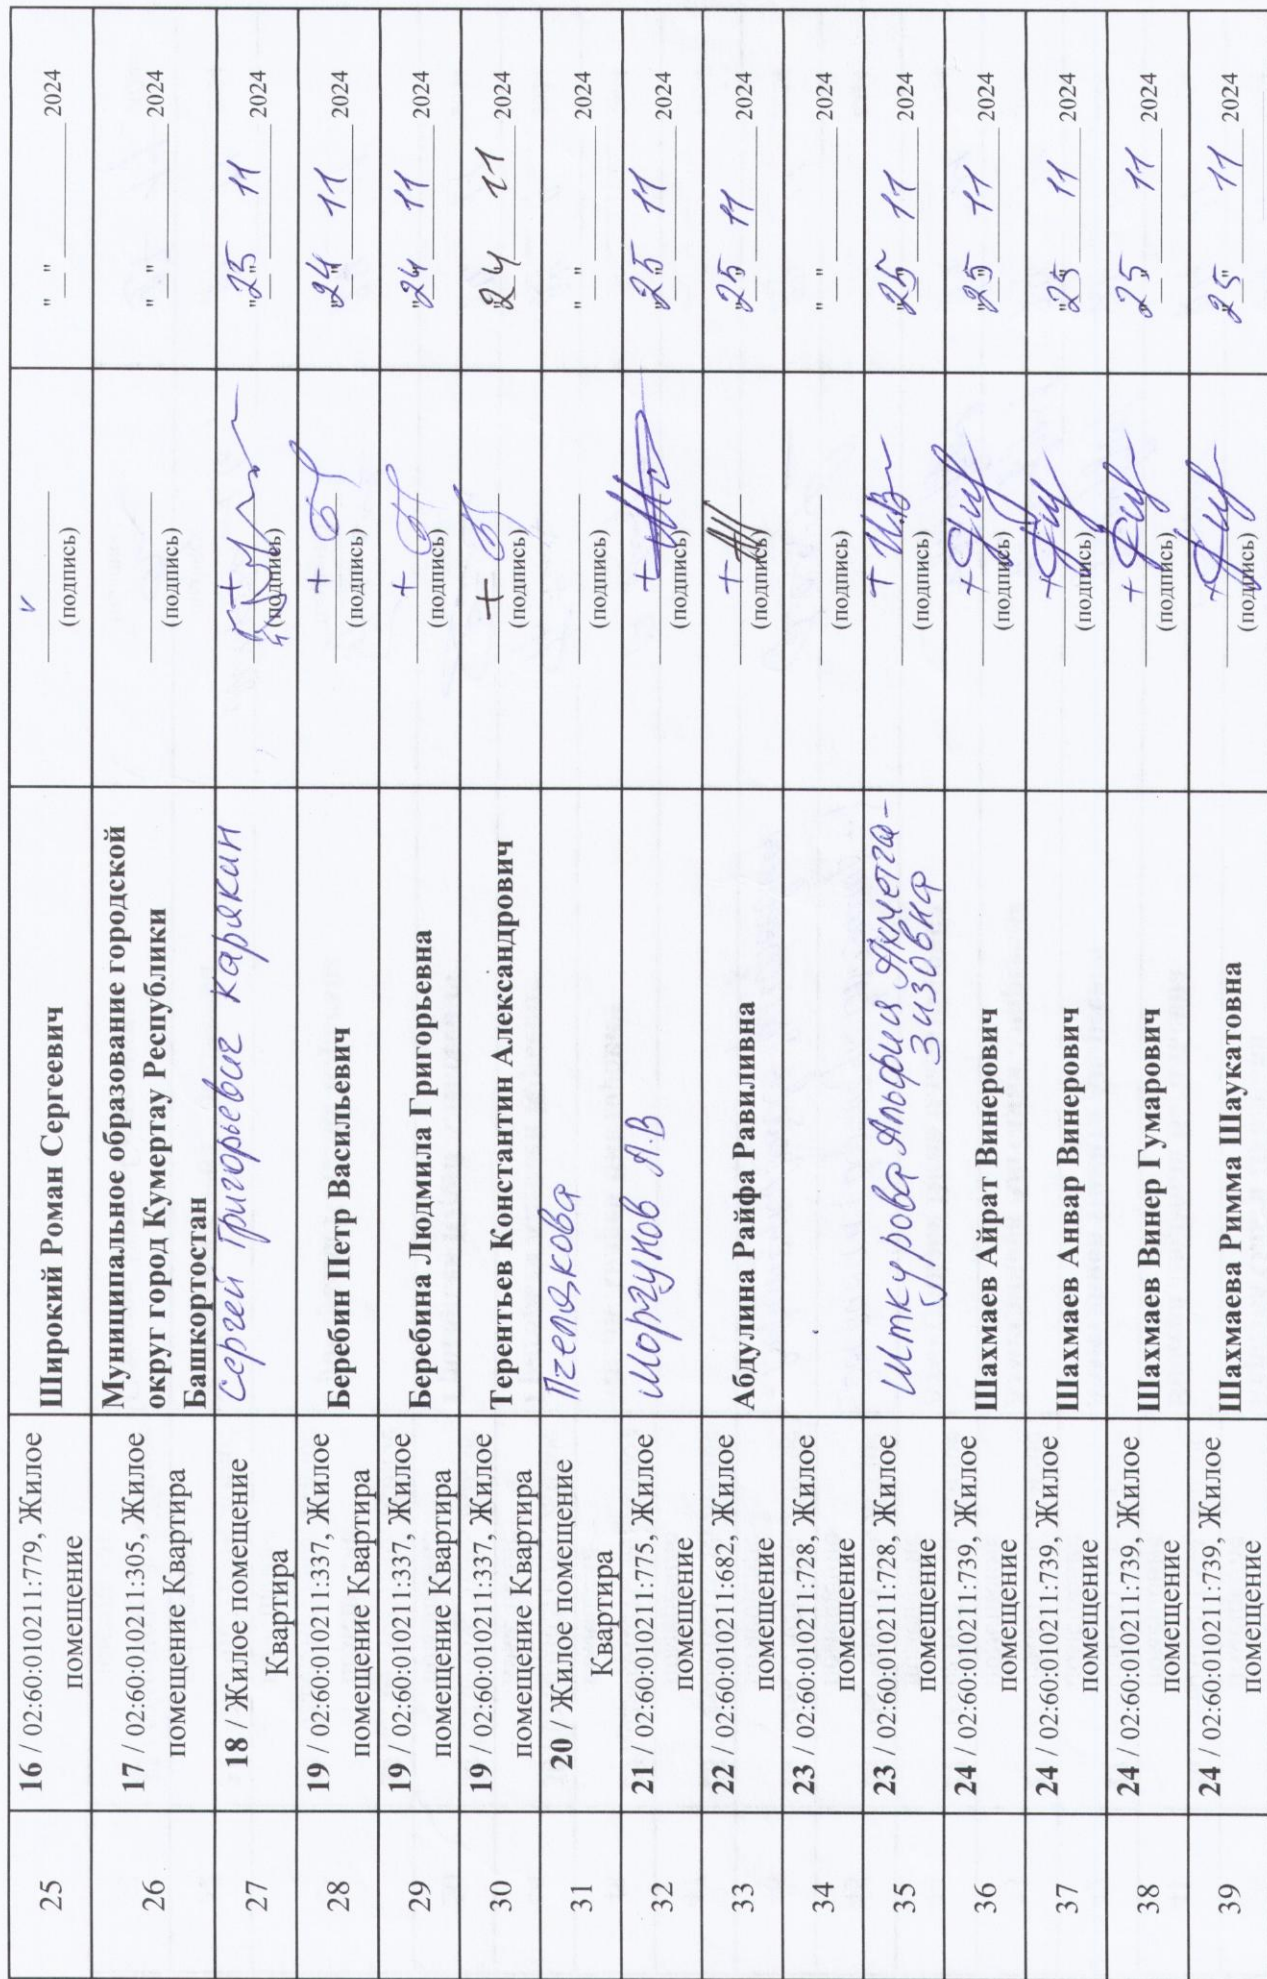 25
16 / 02:60:010211:779, Жилое
помещение
Широкий Роман Сергеевич
v
(подпись)
"__" ______ 2024
26
17 / 02:60:010211:305, Жилое
помещение Квартира
Муниципальное образование городской
округ город Кумертау Республики
Башкортостан
(подпись)
"__" ______ 2024
27
18 / Жилое помещение
Квартира
Сергей Григорьевич Карякин
+
(подпись)
"25" 11 2024
28
19 / 02:60:010211:337, Жилое
помещение Квартира
Беребин Петр Васильевич
+
(подпись)
"24" 11 2024
29
19 / 02:60:010211:337, Жилое
помещение Квартира
Беребина Людмила Григорьевна
+
(подпись)
"24" 11 2024
30
19 / 02:60:010211:337, Жилое
помещение Квартира
Терентьев Константин Александрович
+
(подпись)
"24" 11 2024
31
20 / Жилое помещение
Квартира
Пчелякова
(подпись)
"__" ______ 2024
32
21 / 02:60:010211:775, Жилое
помещение
Моргунов А.В
+
(подпись)
"25" 11 2024
33
22 / 02:60:010211:682, Жилое
помещение
Абдулина Райфа Равиливна
+
(подпись)
"25" 11 2024
34
23 / 02:60:010211:728, Жилое
помещение
(подпись)
"__" ______ 2024
35
23 / 02:60:010211:728, Жилое
помещение
Иткурова Альфия Ахметга-
зизовна
+
(подпись)
"25" 11 2024
36
24 / 02:60:010211:739, Жилое
помещение
Шахмаев Айрат Винерович
+
(подпись)
"25" 11 2024
37
24 / 02:60:010211:739, Жилое
помещение
Шахмаев Анвар Винерович
+
(подпись)
"25" 11 2024
38
24 / 02:60:010211:739, Жилое
помещение
Шахмаев Винер Гумарович
+
(подпись)
"25" 11 2024
39
24 / 02:60:010211:739, Жилое
помещение
Шахмаева Римма Шаукатовна
+
(подпись)
"25" 11 2024